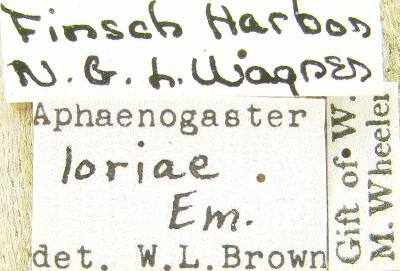 Finsch Harbor
N.G. L. Wagner
Aphaenogaster
loriae
Em.
det. W.L.Brown
Gift of W.
M. Wheeler